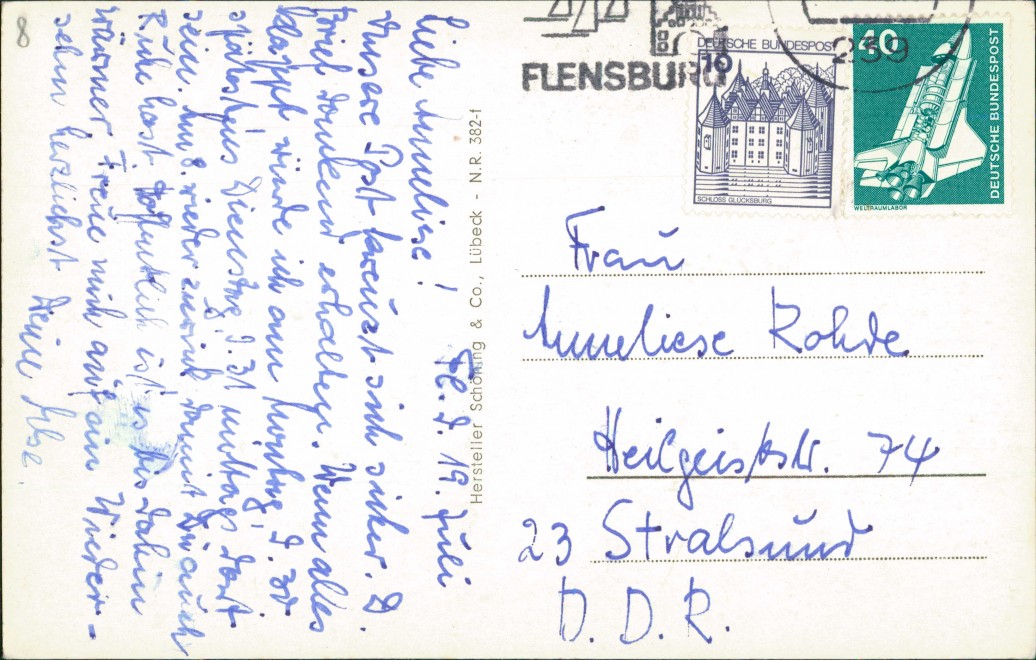 8
Liebe Anneliese!
Fl. d. 19. Juli
Unsere Post kreuzt sich sicher. D.
Brief dankend erhalten. Wenn alles
klappt würde ich am Montag, d. 30
spätestens Dienstag d. 31 mittags dort
sein. Am 8. wieder zurück damit Du auch
Ruhe hast. Hoffentlich ist es bis dahin
wärmer. Freue mich auf ein Wieder-
sehen herzlichst
Deine Ilse
Hersteller Schöning & Co., Lübeck - N.R. 382-1
FLENSBURG
239
DEUTSCHE BUNDESPOST
10
SCHLOSS GLÜCKSBURG
40
DEUTSCHE BUNDESPOST
WELTRAUMLABOR
Frau
Anneliese Rohde
Heilgeiststr. 74
23 Stralsund
D.D.R.